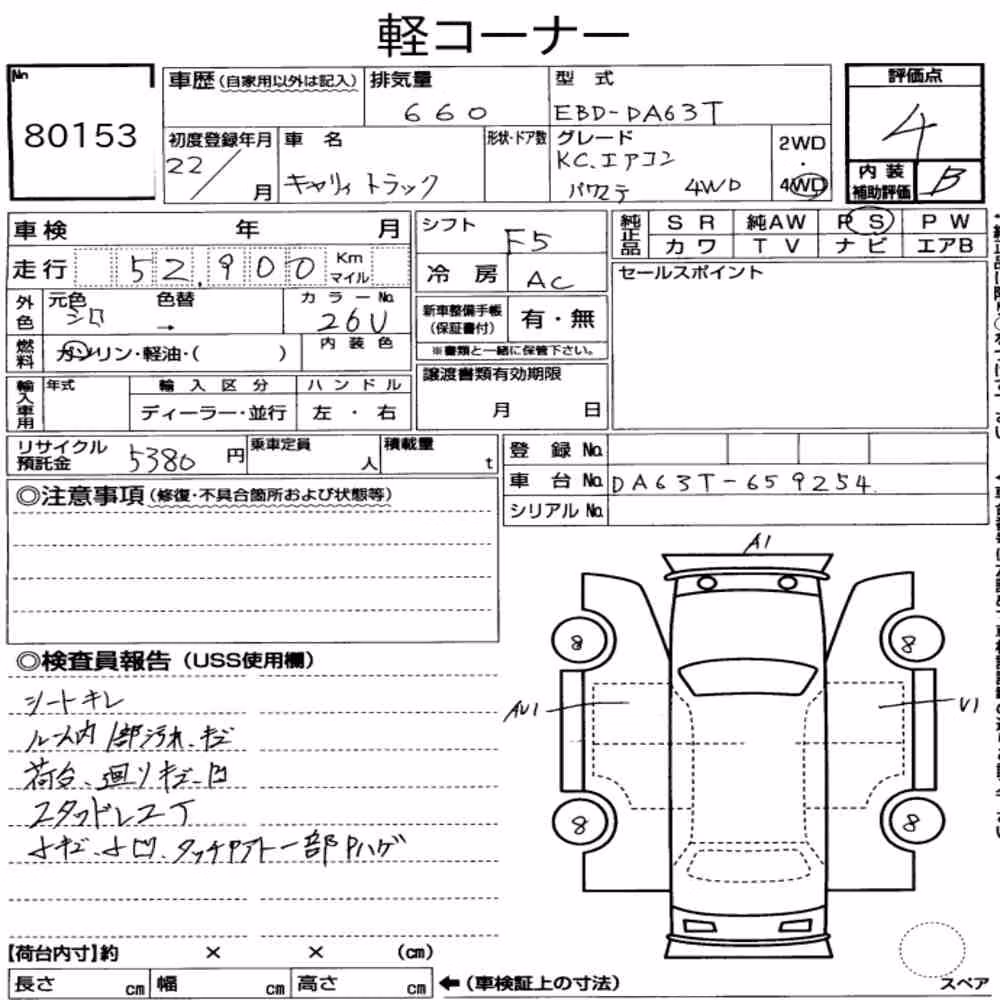 軽コーナー
No
80153
車歴(自家用以外は記入)
排気量
660
型 式
EBD-DA63T
評価点
4
初度登録年月
22/
月
車 名
キャリィ トラック
形状・ドア数
グレード
KC.エアコン
パワステ 4WD
2WD
・
4WD
内 装
補助評価
B
車検 年 月
走行 52,900 Km
マイル
外色
元色
シロ
色替
→
カラーNo.
26U
燃料
ガソリン・軽油・( )
内装色
輸入車用
年式
輸入区分
ディーラー・並行
ハンドル
左・右
シフト
F5
冷房
AC
新車整備手帳
(保証書付)
有・無
※書類と一緒に保管下さい。
譲渡書類有効期限
月 日
純正品
SR 純AW PS PW
カワ TV ナビ エアB
セールスポイント
リサイクル
預託金
5380 円
乗車定員
人
積載量
t
登録No.
車台No. DA63T-659254
シリアルNo.
◎注意事項(修復・不具合箇所および状態等)
◎検査員報告(USS使用欄)
シートキレ
ルーム内 1部汚れ、キズ
荷台、廻りキズ凹
スタッドレス
小キズ、小凹、タッチアト一部Pハゲ
A1
8
8
AU1
U1
8
8
【荷台内寸】約 × × (cm)
長さ cm
幅 cm
高さ cm
←(車検証上の寸法)
スペア